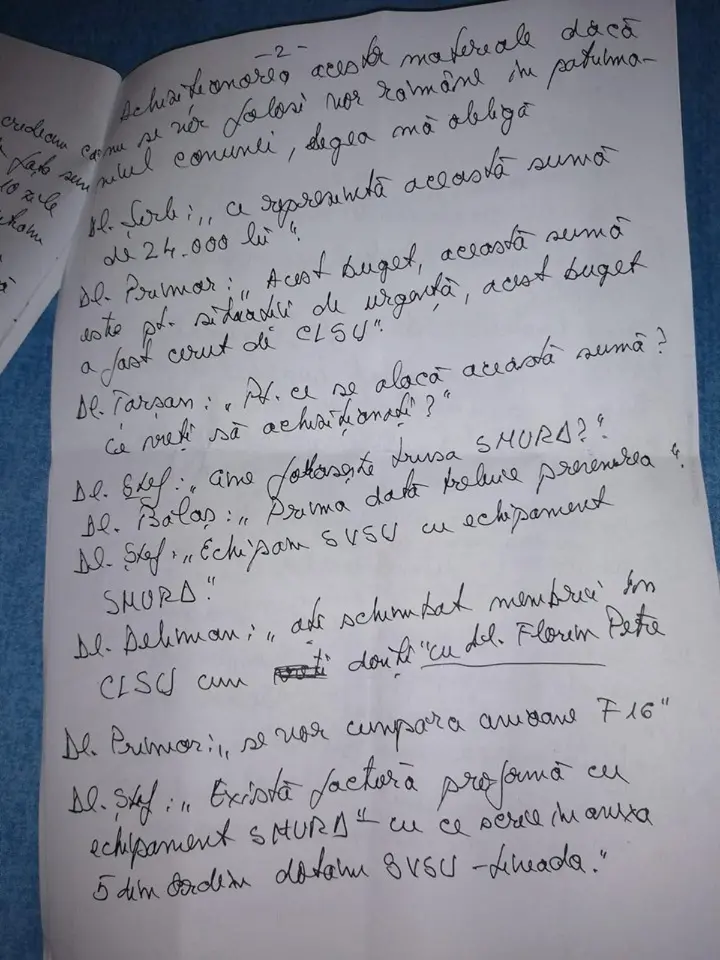 -2-
achiziționarea acestor materiale dacă
nu se vor folosi vor rămâne în patrimo-
niul comunei, legea mă obligă
Dl. Șerb: „ce reprezintă această sumă
de 24.000 lei“.
Dl. Primar: „Acest buget, această sumă
este pt. situații de urgență, acest buget
a fost cerut de CLSU“.
Dl. Tarșan: „Pt. ce se alocă această sumă?
Ce vreți să achiziționați?“
Dl. Ștef: „Cine folosește trusa SMURD?“
Dl. Balaș: „Prima dată trebuie prevenirea“.
Dl. Ștef: „Echipăm SVSU cu echipament
SMURD“
Dl. Dehman: „ați schimbat membrii în
CLSU cum doriți“ cu dl. Florin Petre
Dl. Primar: „se vor cumpăra avioane F16“
Dl. Ștef: „Există factură proformă cu
echipament SMURD“ – cu ce scrie în anexa
5 din Ordin dotăm SVSU -
credeam
10 zile